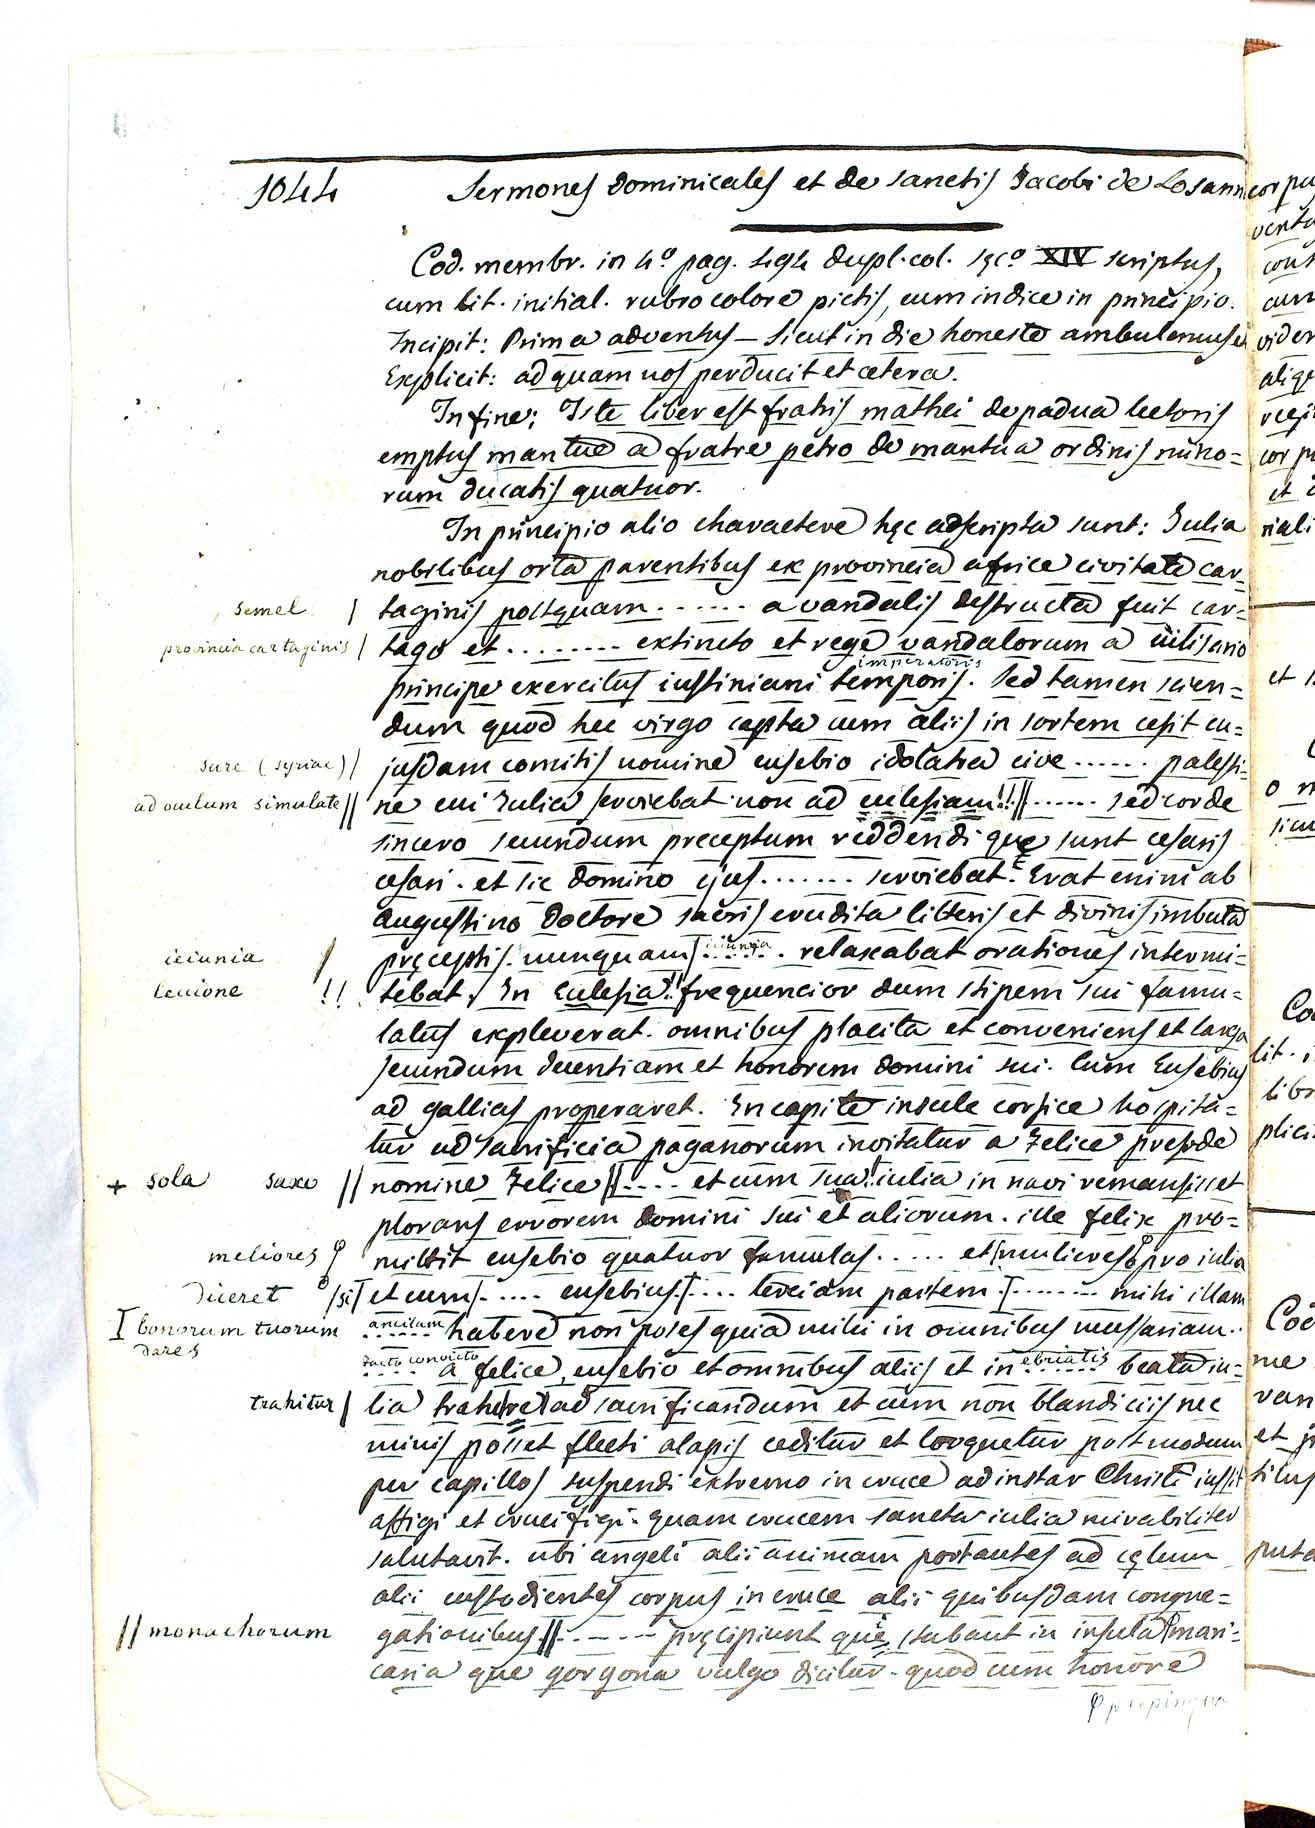 1044 Sermones Dominicales et de sanctis Jacobi de Losann
Cod. membr. in 4º pag. 494 dupl. col. sęcº XIV scriptus,
cum lit. initial. rubro colore pictis, cum indice in principio.
Incipit: Prima adventus – Sicut in die honeste ambulemus et
Explicit: ad quam nos perducit et cetera.
In fine: Iste liber est fratris mathei de padua lectoris
emptus mantue a fratre petro de mantua ordinis mino=
rum ducatis quatuor.
In principio alio charactere hęc adscripta sunt: Julia
nobilibus orta parentibus ex provincia africe civitate car-
semel | taginis postquam ...... a vandalis destructa fuit car-
provincia cartaginis / tago et ........ extincto et rege vandalorum a
imperatoris
principe exercitus iustiniani temporis. Sed tamen scien=
dum quod hec virgo capta cum aliis in sortem cesit cu-
sure (syriae) / jusdam comitis nomine eusebio idolatra cive ...... palesti-
ad oculum simulate // ne cui Julia serviebat non ad eclesiam!! // ...... sed corde
sincero secundum preceptum reddendi quę sunt cesaris
cesari. et sic domino ejus ....... serviebat. Erat enim ab
augustino doctore sacris erudita litteris et divinis imbuta
ieiunia / pręceptis. nunquam ieiunia ...... relaxabat orationes intermi=
leccione !! tebat. In Eclesia!! frequencior dum stipem sui famu=
latus expleverat. omnibus placita et conveniens et larga
secundum decentiam et honorem domini sui. Cum Eusebius
ad gallias properaret. In capite insule corsice hospita=
tur ad sacrificia paganorum invitatur a Felice preside
+ sola saxo // nomine Felice // .... et cum sua iulia in navi remansisset
plorans errorem domini sui et aliorum. ille felix pro=
meliores φ mittit eusebio quatuor famulas ..... et mulieres φ pro iulia
diceret φ /si I et cum / ..... eusebius I .... terciam partem I ........ mihi illam
I bonorum tuorum ancillam ...... habere non potes quia mihi in omnibus
dares
facto convicto ..... a felice, eusebio et omnibus aliis et in ebriatis ...... beata iu=
trahitur / lia trahere ad sacrificandum et cum non blandiciis nec
minis posset flecti alapis ceditur et torquetur postmodum
per capillos suspendi extremo in cruce ad instar Christi iussit
affigi et crucifigi. quam crucem sancta iulia mirabiliter
salutavit. ubi angeli alii animam portantes ad cęlum
alii custodientes corpus in cruce alii quibusdam congre=
// monachorum gationibus // ...... pręcipiunt quę stabant in insula φ mari=
caria que gorgona vulgo dicitur. quod cum honore
φ propinqua